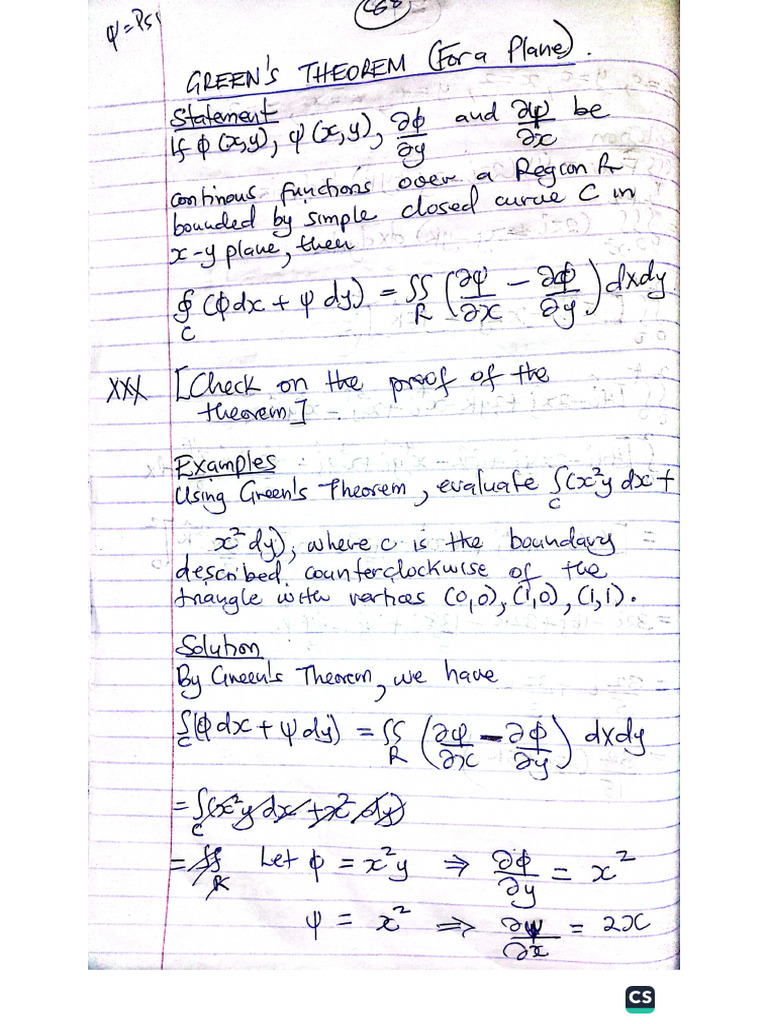 ψ = Psi
68
GREEN'S THEOREM (For a Plane).
Statement
If ϕ(x,y), ψ(x,y), ∂ϕ/∂y and ∂ψ/∂x be
continous functions over a Region R
bounded by simple closed curve C in
x-y plane, then
∮_C (ϕdx + ψdy) = ∬_R (∂ψ/∂x − ∂ϕ/∂y) dxdy.
XXX [Check on the proof of the
theorem].
Examples
Using Green's Theorem, evaluate ∫_C (x²y dx +
x² dy), where c is the boundary
described counterclockwise of the
triangle with vertices (0,0), (1,0), (1,1).
Solution
By Green's Theorem, we have
∫_C (ϕdx + ψdy) = ∬_R (∂ψ/∂x − ∂ϕ/∂y) dxdy
= ∫_C (x²y dx + x² dy)
= ∬_R Let ϕ = x²y ⇒ ∂ϕ/∂y = x²
ψ = x² ⇒ ∂ψ/∂x = 2x
CS